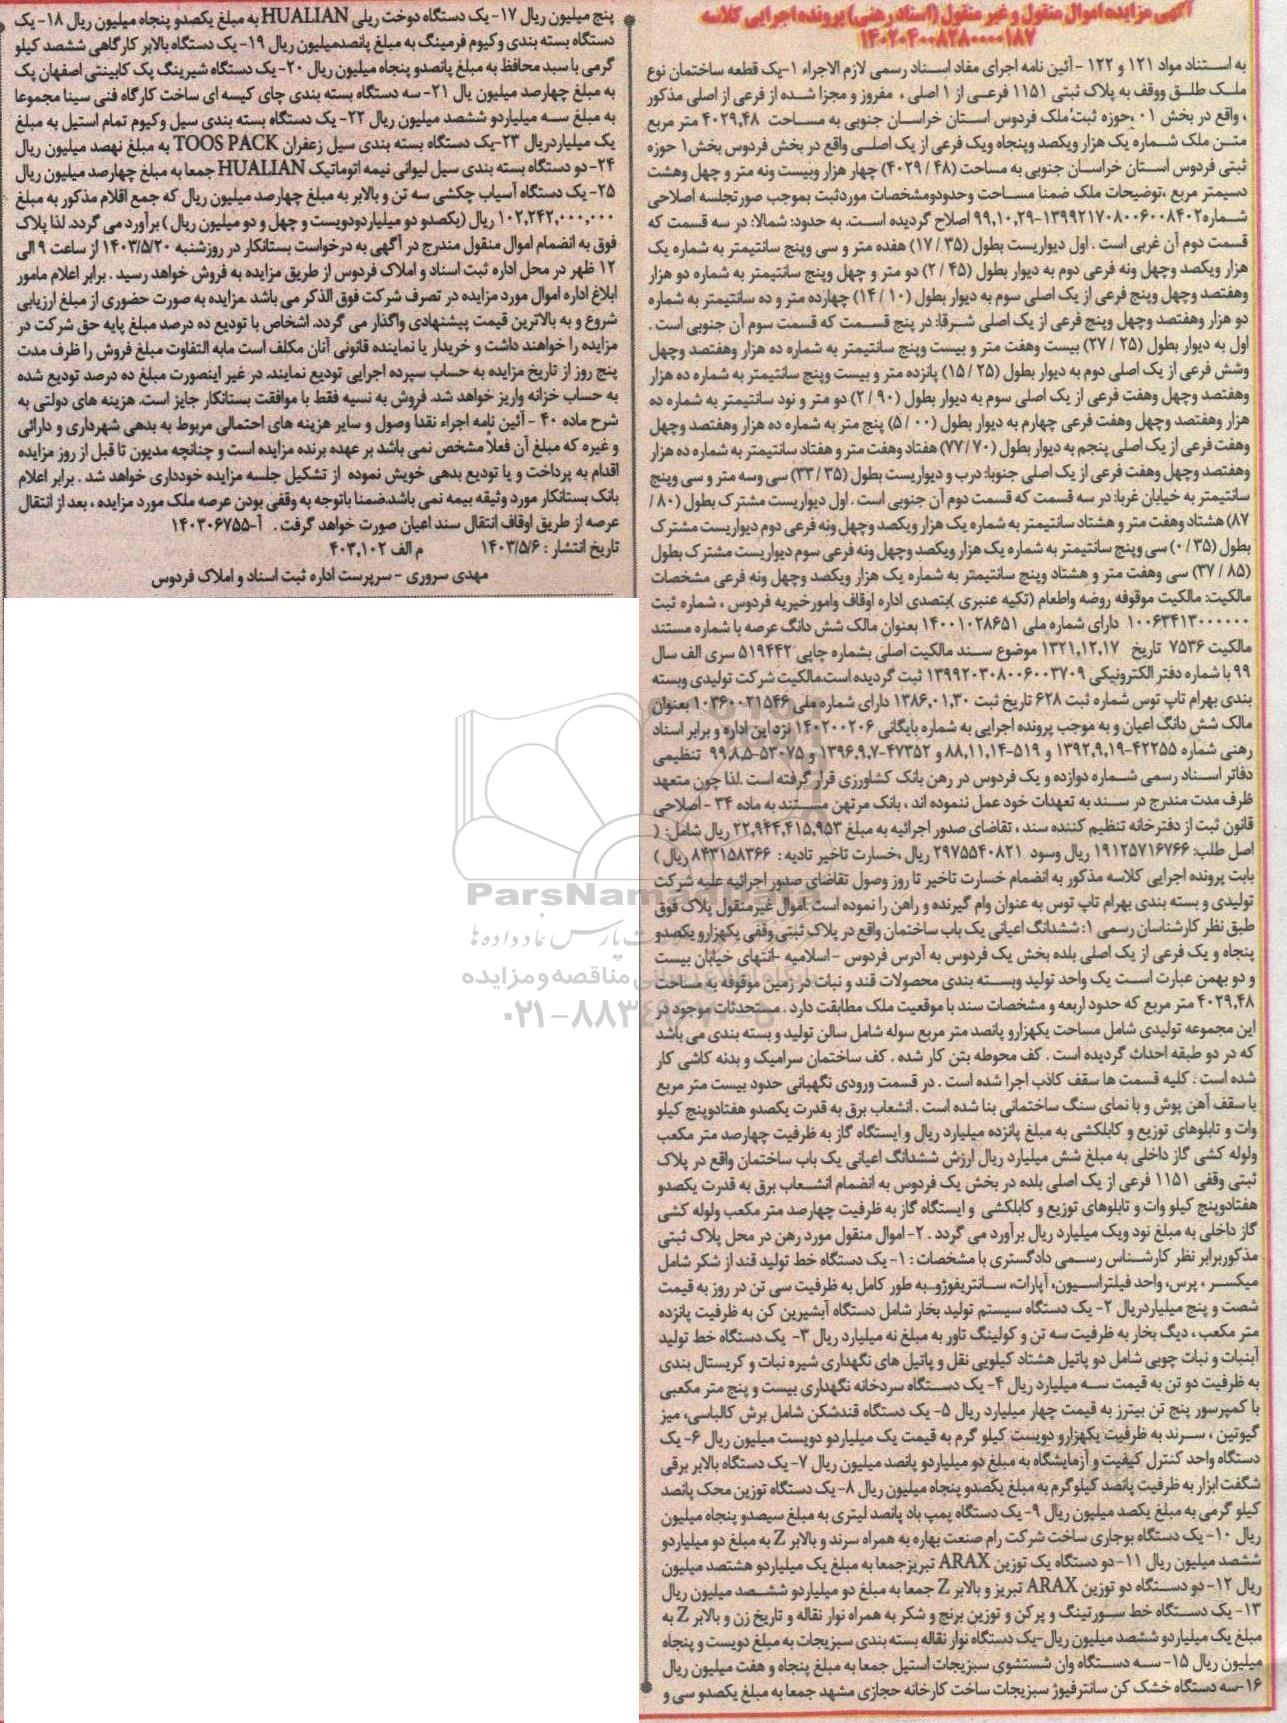 آگهی مزایده اموال منقول و غیر منقول (اسناد رهنی) پرونده اجرایی کلاسه
۱۴۰۲۰۴۰۰۸۲۸۰۰۰۰۱۸۷
به استناد مواد ۱۲۱ و ۱۲۲ - آئین نامه اجرای مفاد اسناد رسمی لازم الاجراء ۱-یک قطعه ساختمان نوع
ملک طلق ووقف به پلاک ثبتی ۱۱۵۱ فرعی از ۱ اصلی ، مفروز و مجزا شده از فرعی از اصلی مذکور
، واقع در بخش ۰۱ ،حوزه ثبت؛ ملک فردوس استان خراسان جنوبی به مساحت ۴۰۲۹٫۴۸ متر مربع
متن ملک شماره یک هزار ویکصد وپنجاه ویک فرعی از یک اصلی واقع در بخش فردوس بخش۱ حوزه
ثبتی فردوس استان خراسان جنوبی به مساحت (۴۸ / ۴۰۲۹) چهار هزار وبیست ونه متر و چهل وهشت
دسیمتر مربع ،توضیحات ملک ضمنا مساحت وحدودومشخصات موردثبت بموجب صورتجلسه اصلاحی
شماره۱۳۹۹۲۱۷۰۸۰۰۶۰۰۸۴۰۲-۹۹٫۱۰٫۲۹ اصلاح گردیده است. به حدود: شمالا: در سه قسمت که
قسمت دوم آن غربی است . اول دیواریست بطول (۳۵ / ۱۷) هفده متر و سی وپنج سانتیمتر به شماره یک
هزار ویکصد وچهل ونه فرعی دوم به دیوار بطول (۴۵ / ۲) دو متر و چهل وپنج سانتیمتر به شماره دو هزار
وهفتصد وچهل وپنج فرعی از یک اصلی سوم به دیوار بطول (۱۰ / ۱۴) چهارده متر و ده سانتیمتر به شماره
دو هزار وهفتصد وچهل وپنج فرعی از یک اصلی شرقا: در پنج قسمت که قسمت سوم آن جنوبی است .
اول به دیوار بطول (۲۵ / ۲۷) بیست وهفت متر و بیست وپنج سانتیمتر به شماره ده هزار وهفتصد وچهل
وشش فرعی از یک اصلی دوم به دیوار بطول (۲۵ / ۱۵) پانزده متر و بیست وپنج سانتیمتر به شماره ده هزار
وهفتصد وچهل وهفت فرعی از یک اصلی سوم به دیوار بطول (۹۰ / ۲) دو متر و نود سانتیمتر به شماره ده
هزار وهفتصد وچهل وهفت فرعی چهارم به دیوار بطول (۰۰ / ۵) پنج متر به شماره ده هزار وهفتصد وچهل
وهفت فرعی از یک اصلی پنجم به دیوار بطول (۷۰ / ۷۷) هفتاد وهفت متر و هفتاد سانتیمتر به شماره ده هزار
وهفتصد وچهل وهفت فرعی از یک اصلی جنوبا: درب و دیواریست بطول (۳۵ / ۳۳) سی وسه متر و سی وپنج
سانتیمتر به خیابان غربا: در سه قسمت که قسمت دوم آن جنوبی است . اول دیواریست مشترک بطول (۸۰ /
۸۷) هشتاد وهفت متر و هشتاد سانتیمتر به شماره یک هزار ویکصد وچهل ونه فرعی دوم دیواریست مشترک
بطول (۳۵ / ۰) سی وپنج سانتیمتر به شماره یک هزار ویکصد وچهل ونه فرعی سوم دیواریست مشترک بطول
(۸۵ / ۳۷) سی وهفت متر و هشتاد وپنج سانتیمتر به شماره یک هزار ویکصد وچهل ونه فرعی مشخصات
مالکیت: مالکیت موقوفه روضه واطعام (تکیه عنبری )بتصدی اداره اوقاف وامورخیریه فردوس ، شماره ثبت
۱۰۰۶۳۴۱۳۰۰۰۰۰۰ دارای شماره ملی ۱۴۰۰۱۰۲۸۶۵۱ بعنوان مالک شش دانگ عرصه با شماره مستند
مالکیت ۷۵۳۶ تاریخ ۱۳۲۱٫۱۲٫۱۷ موضوع سند مالکیت اصلی بشماره چاپی ۵۱۹۴۴۲ سری الف سال
۹۹ با شماره دفتر الکترونیکی ۱۳۹۹۲۰۳۰۸۰۰۶۰۰۳۷۰۹ ثبت گردیده است.مالکیت شرکت تولیدی وبسته
بندی بهرام تاپ توس شماره ثبت ۶۲۸ تاریخ ثبت ۱۳۸۶٫۰۱٫۳۰ دارای شماره ملی ۱۰۳۶۰۰۲۱۵۴۶ بعنوان
مالک شش دانگ اعیان و به موجب پرونده اجرایی به شماره بایگانی ۱۴۰۲۰۰۲۰۶ نزد این اداره و برابر اسناد
رهنی شماره ۴۲۲۵۵-۱۳۹۲٫۹٫۱۹ و ۵۱۹-۸۸٫۱۱٫۱۴ و ۴۷۳۵۲-۱۳۹۶٫۹٫۷ و ۵۳۰۷۵-۹۹٫۸٫۵ تنظیمی
دفاتر اسناد رسمی شماره دوازده و یک فردوس در رهن بانک کشاورزی قرار گرفته است .لذا چون متعهد
ظرف مدت مندرج در سند به تعهدات خود عمل ننموده اند ، بانک مرتهن مستند به ماده ۳۴ - اصلاحی
قانون ثبت از دفترخانه تنظیم کننده سند ، تقاضای صدور اجرائیه به مبلغ ۲۲٫۹۴۴٫۴۱۵٫۹۵۳ ریال شامل: (
اصل طلب: ۱۹۱۲۵۷۱۶۷۶۶ ریال وسود ۲۹۷۵۵۴۰۸۲۱ ریال ،خسارت تاخیر تادیه : ۸۴۳۱۵۸۳۶۶ ریال )
بابت پرونده اجرایی کلاسه مذکور به انضمام خسارت تاخیر تا روز وصول تقاضای صدور اجرائیه علیه شرکت
تولیدی و بسته بندی بهرام تاپ توس به عنوان وام گیرنده و راهن را نموده است اموال غیرمنقول پلاک فوق
طبق نظر کارشناسان رسمی ۱: ششدانگ اعیانی یک باب ساختمان واقع در پلاک ثبتی وقفی یکهزارو یکصدو
پنجاه و یک فرعی از یک اصلی بلده بخش یک فردوس به آدرس فردوس - اسلامیه -انتهای خیابان بیست
و دو بهمن عبارت است یک واحد تولید وبسته بندی محصولات قند و نبات در زمین موقوفه به مساحت
۴۰۲۹٫۴۸ متر مربع که حدود اربعه و مشخصات سند با موقعیت ملک مطابقت دارد . مستحدثات موجود در
این مجموعه تولیدی شامل مساحت یکهزارو پانصد متر مربع سوله شامل سالن تولید و بسته بندی می باشد
که در دو طبقه احداث گردیده است . کف محوطه بتن کار شده . کف ساختمان سرامیک و بدنه کاشی کار
شده است . کلیه قسمت ها سقف کاذب اجرا شده است . در قسمت ورودی نگهبانی حدود بیست متر مربع
با سقف آهن پوش و با نمای سنگ ساختمانی بنا شده است . انشعاب برق به قدرت یکصدو هفتادوپنج کیلو
وات و تابلوهای توزیع و کابلکشی به مبلغ پانزده میلیارد ریال و ایستگاه گاز به ظرفیت چهارصد متر مکعب
ولوله کشی گاز داخلی به مبلغ شش میلیارد ریال ارزش ششدانگ اعیانی یک باب ساختمان واقع در پلاک
ثبتی وقفی ۱۱۵۱ فرعی از یک اصلی بلده در بخش یک فردوس به انضمام انشعاب برق به قدرت یکصدو
هفتادوپنج کیلو وات و تابلوهای توزیع و کابلکشی و ایستگاه گاز به ظرفیت چهارصد متر مکعب ولوله کشی
گاز داخلی به مبلغ نود ویک میلیارد ریال برآورد می گردد . ۲-اموال منقول مورد رهن در محل پلاک ثبتی
مذکوربرابر نظر کارشناس رسمی دادگستری با مشخصات : ۱- یک دستگاه خط تولید قند از شکر شامل
میکسر ، پرس، واحد فیلتراسیون، آپارات، سانتریفوژو...به طور کامل به ظرفیت سی تن در روز به قیمت
شصت و پنج میلیاردریال ۲- یک دستگاه سیستم تولید بخار شامل دستگاه آبشیرین کن به ظرفیت پانزده
متر مکعب ، دیگ بخار به ظرفیت سه تن و کولینگ تاور به مبلغ نه میلیارد ریال ۳- یک دستگاه خط تولید
آبنبات و نبات چوبی شامل دو پاتیل هشتاد کیلویی نقل و پاتیل های نگهداری شیره نبات و کریستال بندی
به ظرفیت دو تن به قیمت سه میلیارد ریال ۴- یک دستگاه سردخانه نگهداری بیست و پنج متر مکعبی
با کمپرسور پنج تن بیتزر به قیمت چهار میلیارد ریال ۵- یک دستگاه قندشکن شامل برش کالباسی، میز
گیوتین ، سرند به ظرفیت یکهزارو دویست کیلو گرم به قیمت یک میلیاردو دویست میلیون ریال ۶- یک
دستگاه واحد کنترل کیفیت و آزمایشگاه به مبلغ دو میلیاردو پانصد میلیون ریال ۷- یک دستگاه بالابر برقی
شگفت ابزار به ظرفیت پانصد کیلوگرم به مبلغ یکصدو پنجاه میلیون ریال ۸- یک دستگاه توزین محک پانصد
کیلو گرمی به مبلغ یکصد میلیون ریال ۹- یک دستگاه پمپ باد پانصد لیتری به مبلغ سیصدو پنجاه میلیون
ریال ۱۰- یک دستگاه بوجاری ساخت شرکت رام صنعت بهاره به همراه سرند و بالابر Z به مبلغ دو میلیاردو
ششصد میلیون ریال ۱۱- دو دستگاه یک توزین ARAX تبریزجمعا به مبلغ یک میلیاردو هشتصد میلیون
ریال ۱۲- دو دستگاه دو توزین ARAX تبریز و بالابر Z جمعا به مبلغ دو میلیاردو ششصد میلیون ریال
۱۳- یک دستگاه خط سورتینگ و پرکن و توزین برنج و شکر به همراه نوار نقاله و تاریخ زن و بالابر Z به
مبلغ یک میلیاردو ششصد میلیون ریال-یک دستگاه نوار نقاله بسته بندی سبزیجات به مبلغ دویست و پنجاه
میلیون ریال ۱۵- سه دستگاه وان شستشوی سبزیجات استیل جمعا به مبلغ پنجاه و هفت میلیون ریال
۱۶-سه دستگاه خشک کن سانترفیوژ سبزیجات ساخت کارخانه حجازی مشهد جمعا به مبلغ یکصدو سی و
پنج میلیون ریال ۱۷- یک دستگاه دوخت ریلی HUALIAN به مبلغ یکصدو پنجاه میلیون ریال ۱۸- یک
دستگاه بسته بندی وکیوم فرمینگ به مبلغ پانصدمیلیون ریال ۱۹- یک دستگاه بالابر کارگاهی ششصد کیلو
گرمی با سبد محافظ به مبلغ پانصدو پنجاه میلیون ریال ۲۰- یک دستگاه شیرینگ پک کابینتی اصفهان پک
به مبلغ چهارصد میلیون یال ۲۱- سه دستگاه بسته بندی چای کیسه ای ساخت کارگاه فنی سینا مجموعا
به مبلغ سه میلیاردو ششصد میلیون ریال ۲۲- یک دستگاه بسته بندی سیل وکیوم تمام استیل به مبلغ
یک میلیاردریال ۲۳-یک دستگاه بسته بندی سیل زعفران TOOS PACK به مبلغ نهصد میلیون ریال
۲۴- دو دستگاه بسته بندی سیل لیوانی نیمه اتوماتیک HUALIAN جمعا به مبلغ چهارصد میلیون ریال
۲۵- یک دستگاه آسیاب چکشی سه تن و بالابر به مبلغ چهارصد میلیون ریال که جمع اقلام مذکور به مبلغ
۱۰۲٫۲۴۲٫۰۰۰٫۰۰۰ ریال (یکصدو دو میلیاردودویست و چهل و دو میلیون ریال ) برآورد می گردد. لذا پلاک
فوق به انضمام اموال منقول مندرج در آگهی به درخواست بستانکار در روزشنبه ۱۴۰۳/۵/۲۰ از ساعت ۹ الی
۱۲ ظهر در محل اداره ثبت اسناد و املاک فردوس از طریق مزایده به فروش خواهد رسید . برابر اعلام مامور
ابلاغ اداره اموال مورد مزایده در تصرف شرکت فوق الذکر می باشد .مزایده به صورت حضوری از مبلغ ارزیابی
شروع و به بالاترین قیمت پیشنهادی واگذار می گردد. اشخاص با تودیع ده درصد مبلغ پایه حق شرکت در
مزایده را خواهند داشت و خریدار یا نماینده قانونی آنان مکلف است مابه التفاوت مبلغ فروش را ظرف مدت
پنج روز از تاریخ مزایده به حساب سپرده اجرایی تودیع نمایند. در غیر اینصورت مبلغ ده درصد تودیع شده
به حساب خزانه واریز خواهد شد. فروش به نسیه فقط با موافقت بستانکار جایز است. هزینه های دولتی به
شرح ماده ۴۰ - آئین نامه اجراء نقداً وصول و سایر هزینه های احتمالی مربوط به بدهی شهرداری و دارائی
و غیره که مبلغ آن فعلاً مشخص نمی باشد بر عهده برنده مزایده است و چنانچه مدیون تا قبل از روز مزایده
اقدام به پرداخت و یا تودیع بدهی خویش نموده از تشکیل جلسه مزایده خودداری خواهد شد . برابر اعلام
بانک بستانکار مورد وثیقه بیمه نمی باشد.ضمنا باتوجه به وقفی بودن عرصه ملک مورد مزایده ، بعد از انتقال
عرصه از طریق اوقاف انتقال سند اعیان صورت خواهد گرفت . آ-۱۴۰۳۰۶۷۵۵
تاریخ انتشار : ۱۴۰۳/۵/۶ م الف ۴۰۳٫۱۰۲
مهدی سروری - سرپرست اداره ثبت اسناد و املاک فردوس
ParsNamadData
پارس نماد داده ها
پایگاه اطلاع رسانی مناقصه و مزایده
۰۲۱-۸۸۳۴۹۶۷۰-۵